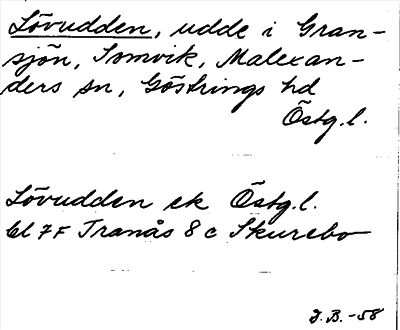 Lövudden, udde i Gran-
sjön, Tomvik, Malexan-
ders sn, Göstrings hd
Östg.l.
Lövudden ek Östg.l.
bl 7F Tranås 8 c Skurebo
J.B.-58